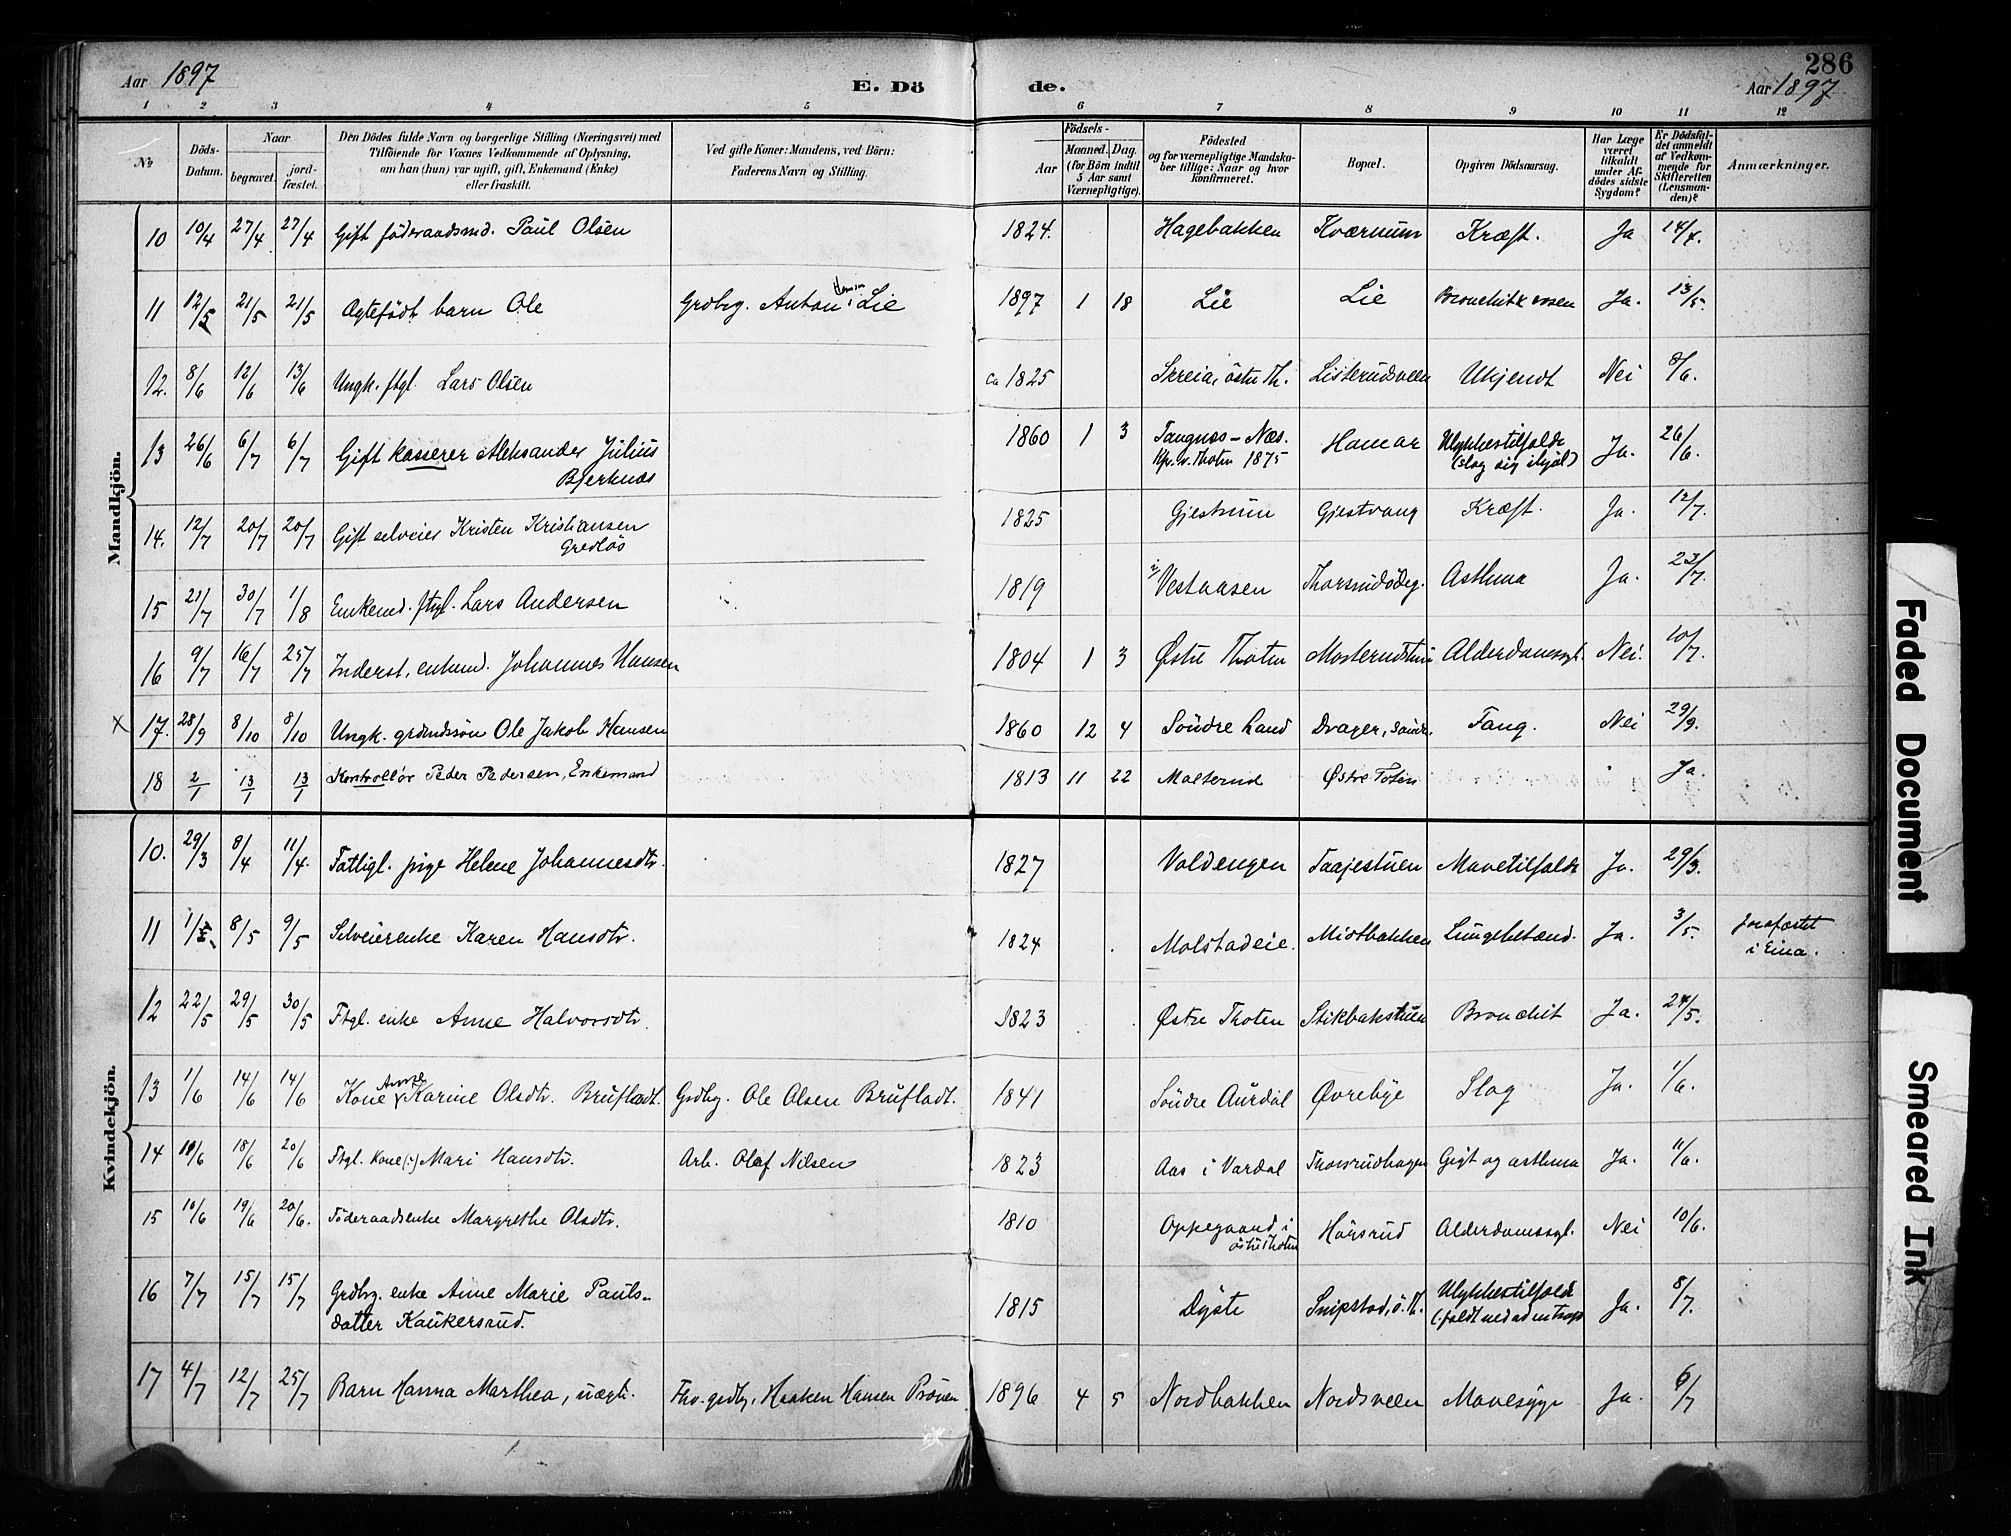 286
Aar 1897
E. Döde.
Aar 1897
1 2 3 4 5 6 7 8 9 10 11 12
No
Döds-Datum.
Naar
begravet.
jordfæstet.
Den Dödes fulde Navn og borgerlige Stilling (Næringsvei) med
Tilföiende for Voxnes Vedkommende af Oplysning,
om han (hun) var ugift, gift, Enkemand (Enke)
eller fraskilt.
Ved gifte Koner: Mandens, ved Börn:
Faderens Navn og Stilling.
Födsels-
Aar
Maaned. Dag.
(for Börn indtil
5 Aar samt
Værnepligtige).
Födested
og for værnepligtige Mandskaber tillige: Naar og hvor
konfirmeret.
Bopæl.
Opgiven Dödsaarsag.
Har Læge
været
tilkaldt
under Afdödes sidste
Sygdom?
Er Dödsfaldet anmeldt
af Vedkommende for
Skifteretten
(Lensmanden)?
Anmærkninger.
Mandkjön.
10 10/4 27/4 27/4 Gift föderaadsmd. Paul Olsen 1824. Hagebakken Kværnum Kræft. Ja 14/4.
11 12/5 21/5 21/5 Ægtefödt barn Ole Grdbrg. Anton Lie 1897 1 18 Lie Lie Ja. 13/5.
12. 8/6 12/6 13/6 Ungk. ftgl. Lars Olsen ca 1825 Skreia, östre Th. Listerudsveen Ukjendt Nei 8/6.
13 26/6 6/7 6/7 Gift kasserer Aleksander Julius Bjerknæs 1860 1 3 Tangnæs - Næs. Kfr. v. Thoten 1875 Hamar Ulykkestilfælde (slog sig ihjæl) Ja. 26/6.
14. 12/7 20/7 20/7 Gift selveier Kristen Kristiansen Gredlös 1825 Gjestrum Gjestvang Kræft. Ja. 12/7.
15 21/7 30/7 1/8 Enkemd. ftgl. Lars Andersen 1819 Vestaasen Thorsrudödeg. Asthma Ja. 23/7.
16 9/7 16/7 25/7 Inderst, enkemd. Johannes Hansen 1804 1 3 Østre Thoten Alderdomssvgh. Nei. 10/7.
x 17. 28/9 8/10 8/10 Ungk. grdmdssön Ole Jakob Hansen 1860 12 4 Söndre Land Drager, söndr. Tang. Nei 29/9.
18 2/1 13/1 13/1 Kontrollör Peder Pedersen, Enkemand 1813 11 22 Malterud Østre Toten Ja.
Kvindekjön.
10. 29/3 8/4 11/4. Fattigl. pige Helene Johannesdtr. 1827 Voldengen Taajestuen Mavetilfælde Ja. 29/3.
11 1/5. 8/5 9/5 Selveierenke Karen Hansdtr. 1824 Molstadeie. Midtbakken Lungebetænd. Ja. 3/5. Jordfæstet
i Eina.
12 22/5 29/5 30/5 Ftgl. enke Anne Halvorsdtr. 1823 Østre Thoten Stikbakstuen Bronchit Ja. 24/5.
13 1/6 14/6 14/6 Kone Anne Karine Olsdtr. Brufladt. Grdbrg. Ole Olsen Brufladt. 1841 Söndre Aurdal Øvrebye Slag Ja. 1/6.
14 10/6 18/6 20/6 Ftgl. Kone (:) Mari Hansdtr. Arb. Olaf Nilsen 1823 Aas i Vardal Thorsrudhagen Gigt og asthma Ja. 11/6.
15 10/6 19/6 20/6. Föderaadsenke Margrethe Olsdtr. 1810 Oppegaard i östre Thoten Hörsrud Alderdomssvgh. Nei 10/6.
16 7/7 15/7 15/7 Grdbrg. enke Anne Marie Pauls-
datter Kaukersrud. 1815 Dyste Snipstad, ö. Th. Ulykkestilfælde (faldt ned ad en trap) Ja. 8/7.
17 4/7 12/7 25/7 Barn Hanna Marthea, uægte. Fhv. grdbr, Haaken Hansen Pröven 1896 4 5 Nordbakken Nordsveen Mavesyge Ja. 6/7
Faded Document
Smeared Ink